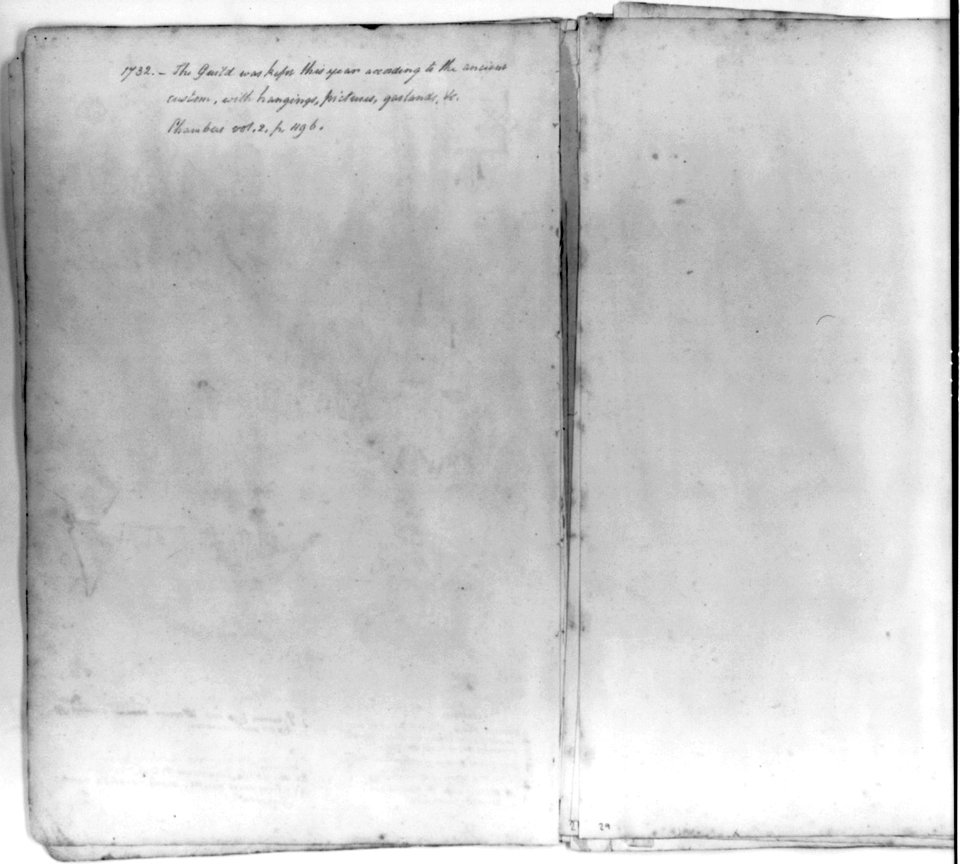 1732. – The Guild was kept this year according to the ancient
custom, with hangings, pictures, garlands, &c.
Chambers vol. 2, p. 1196.
29